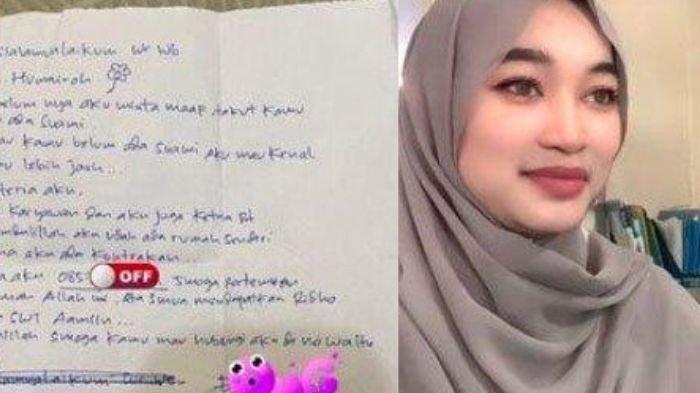 ssalamualaikum wr wb
Humairoh
belum nya aku minta maaf takut kamu
ada suami
kamu belum ada suami aku mau kenal
lebih jauh...
teria aku.
karyawan dan aku juga ketua Rt
aku udah ada rumah sendiri
aku ada kontrakan...
aku 085 OFF semoga pertemuan
Allah ini. dan semua mendapatkan Ridho
SWT Aamiin...
semoga kamu mau hubungi aku di no wa itu